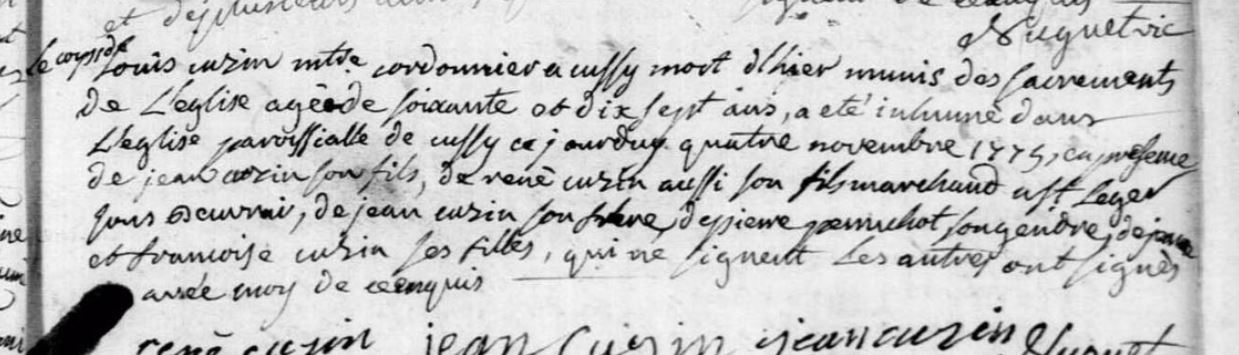 et de plusieurs
Nuguet vic
Le corps de
Louis cuzin mtre cordonnier a cussy mort d'hier munis des sacrements
de L'eglise agée de soixante et dix sept ans, a eté inhumé dans
L'eglise paroissialle de cussy ce jourduy quatre novembre 1775, en presence
de jean cuzin son fils, de rené cuzin aussi son fils marchand a st Leger
sous Beuvrai, de jean cuzin son frere, de pierre son gendre, de jeanne
et francoise cuzin ses filles, qui ne signent Les autres ont signés
avec moy de ce enquis
rené cuzin jean cuzin jean cuzin Nuguet